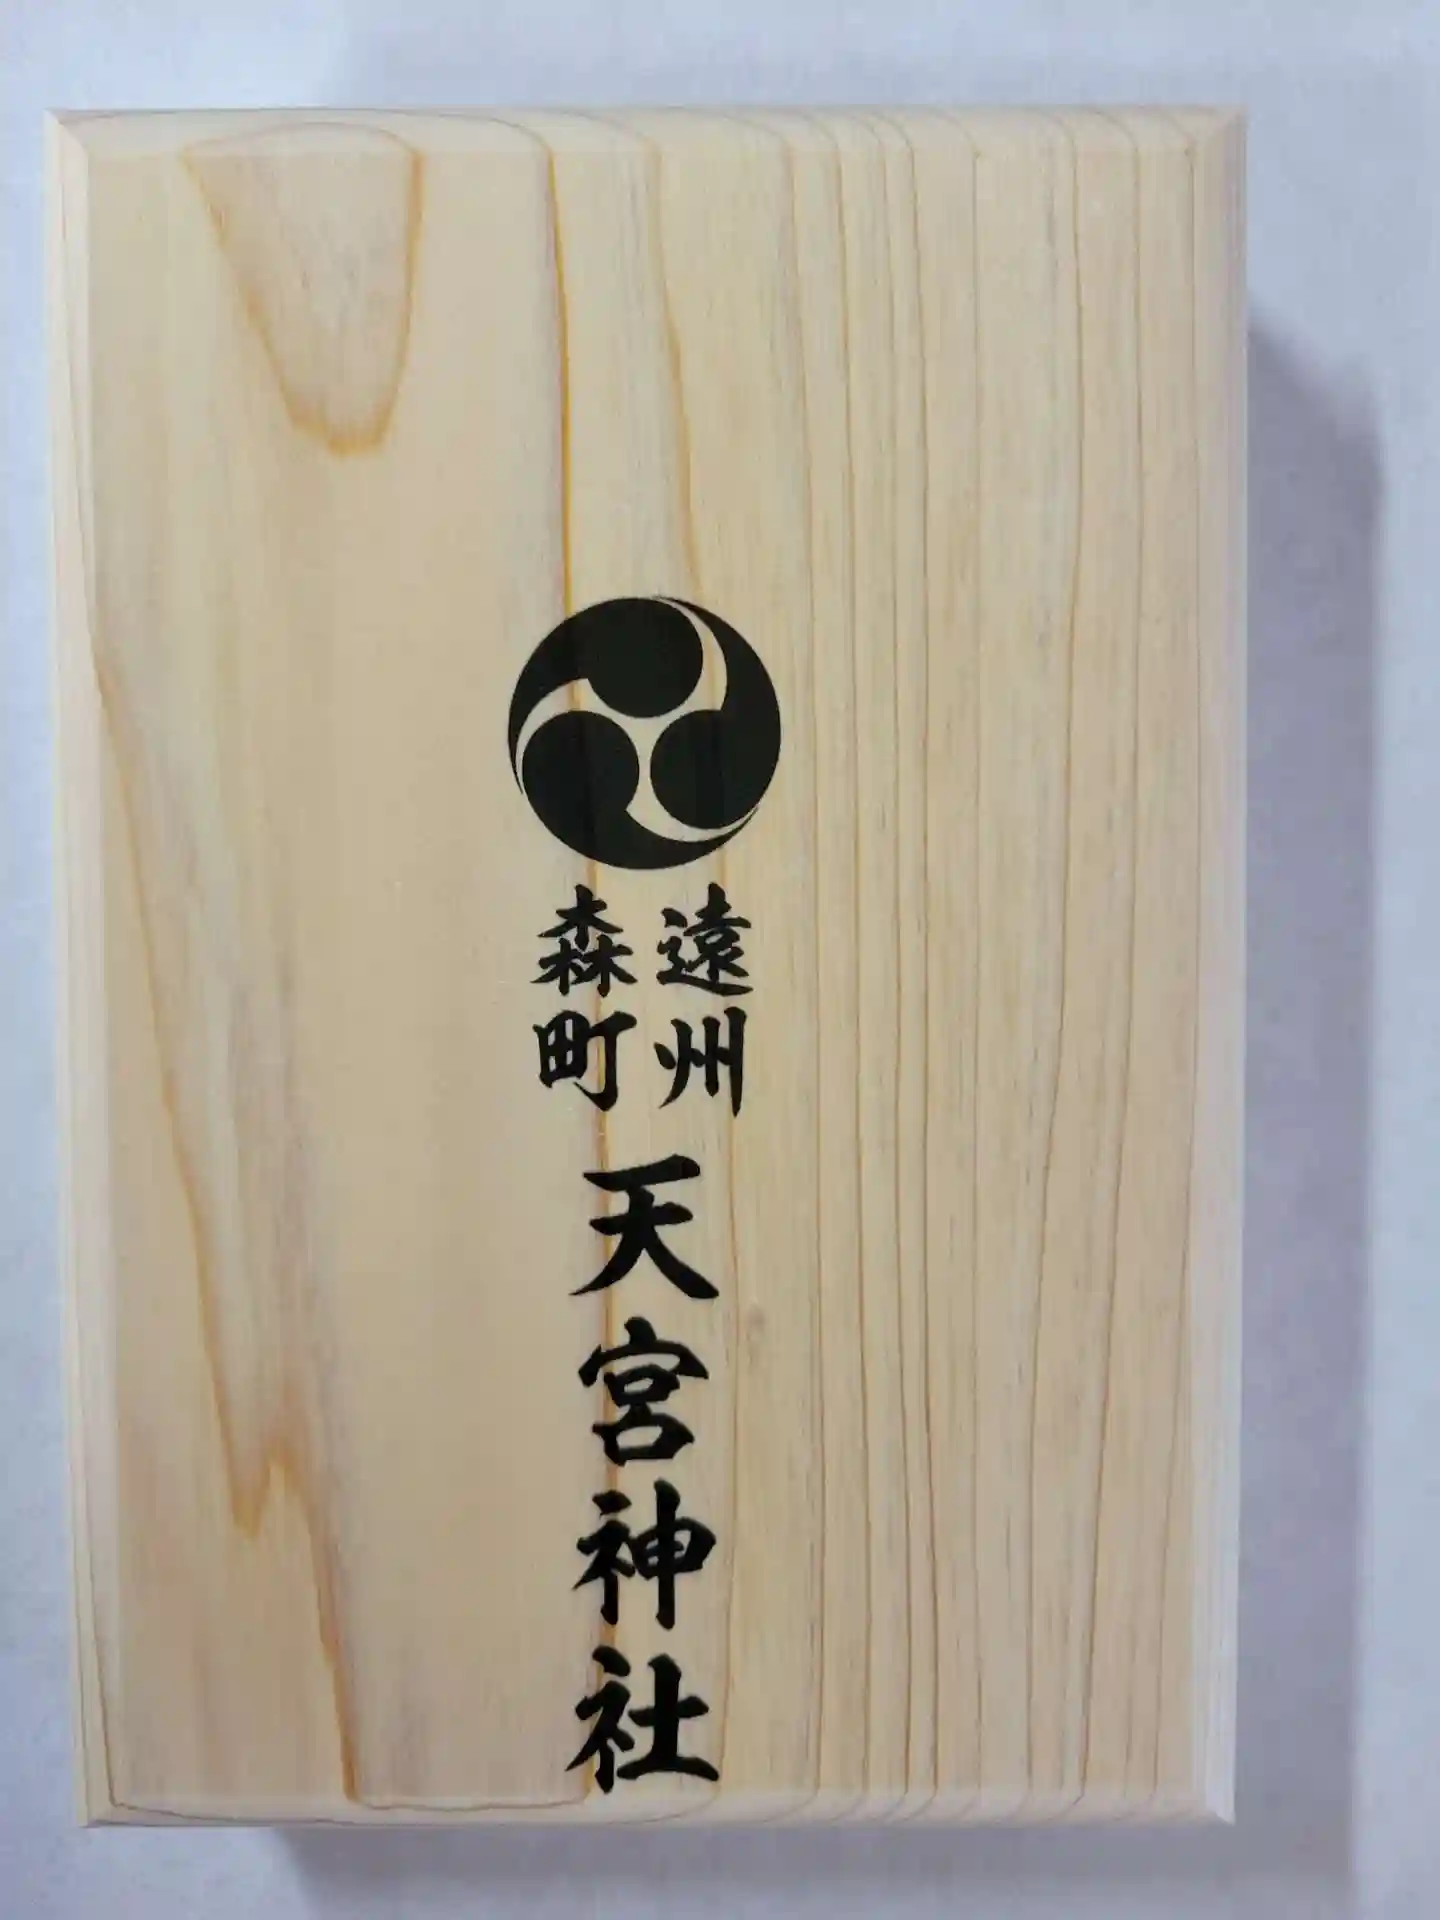 遠州
森町
天宮神社